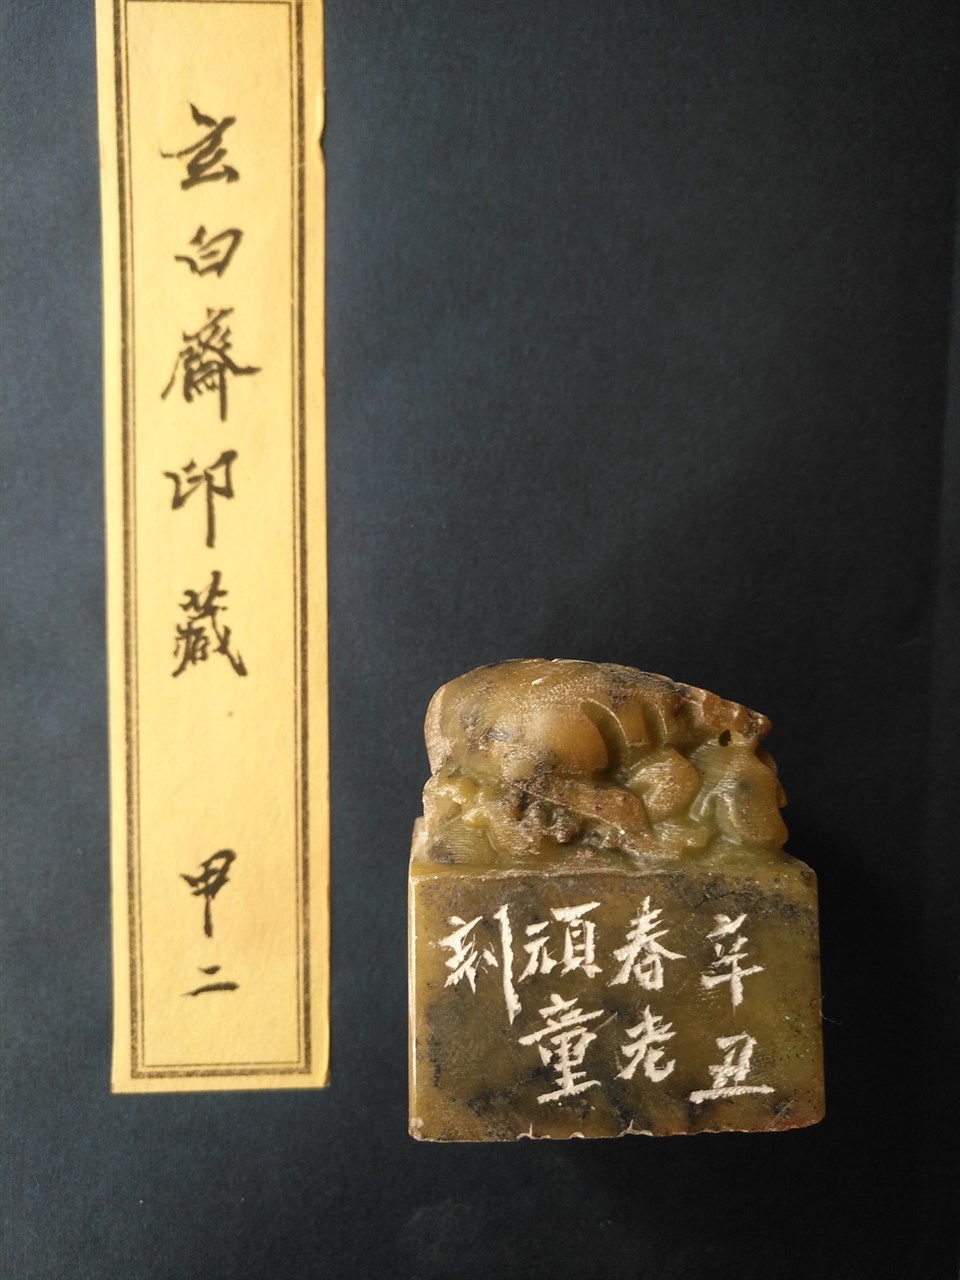 玄白齋印藏
甲二
辛丑
春老
頑童
刻